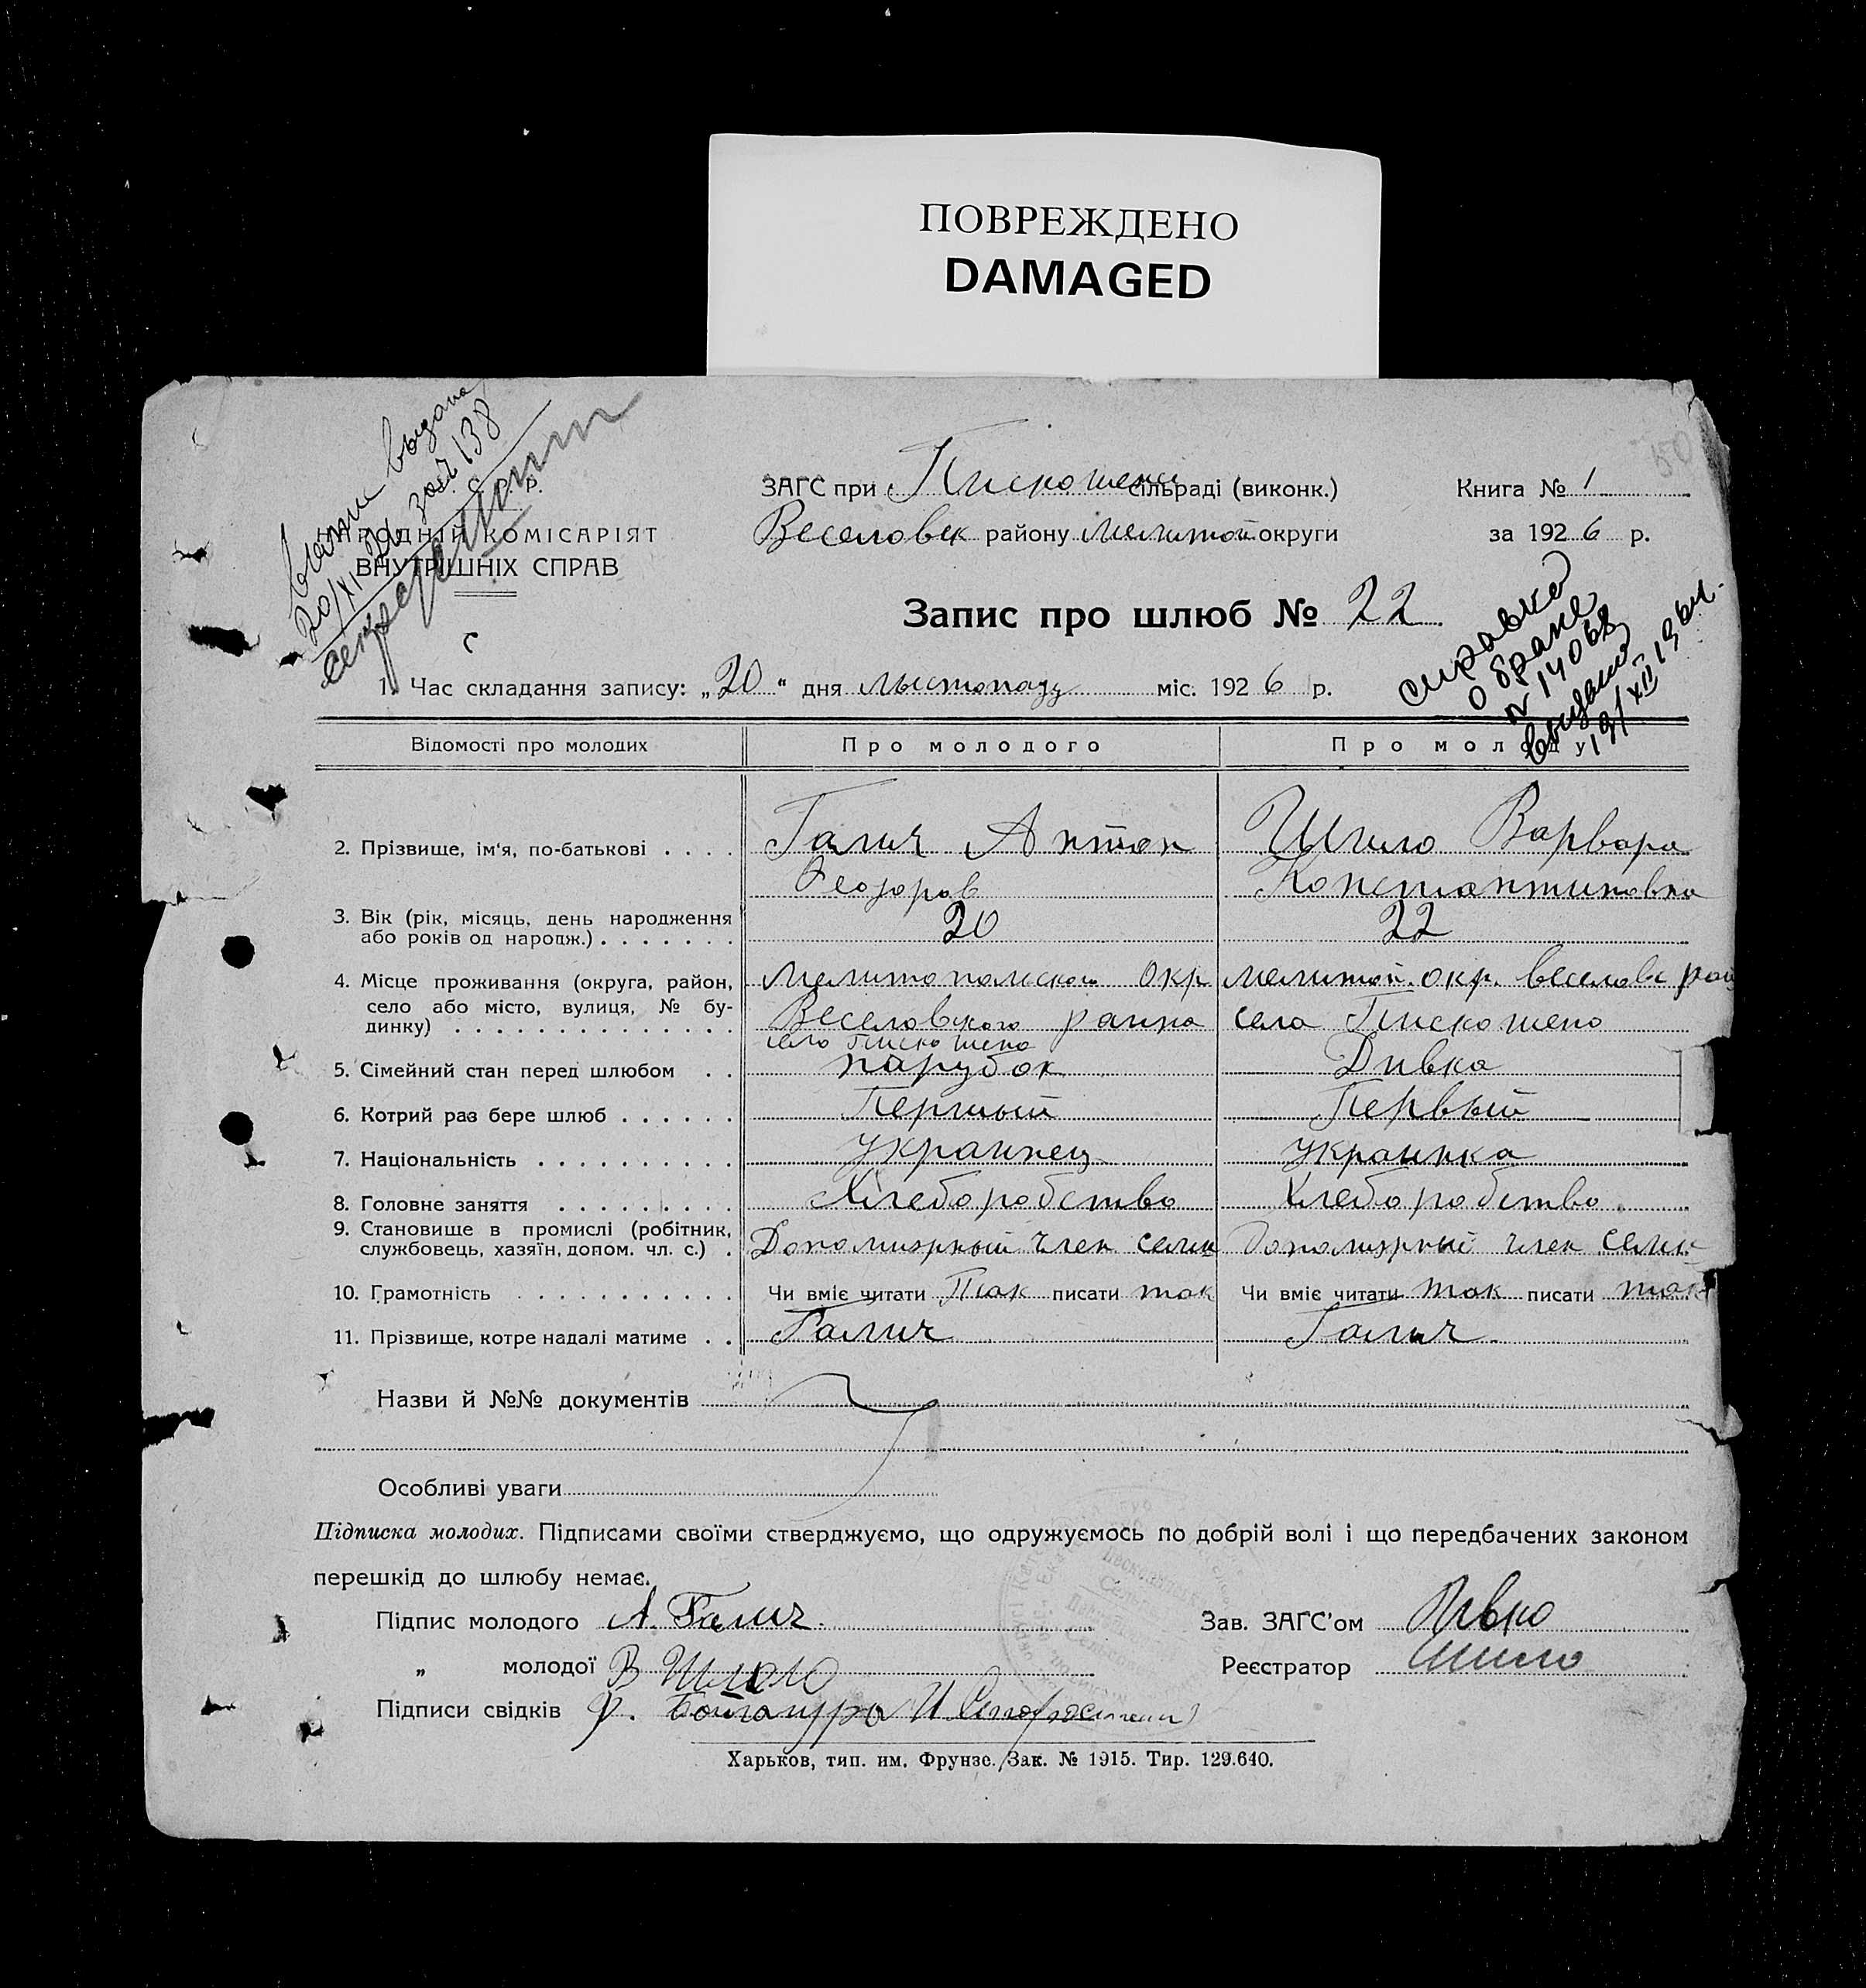 ПОВРЕЖДЕНО
DAMAGED
50
выдана
20/XI 26 138
С. Р.
НАРОДНІЙ КОМІСАРІЯТ
ВНУТРІШНІХ СПРАВ
ЗАГС при Пискошено сільраді (виконк.)
Книга № 1
Веселовск району Мелитоп округи
за 1926 р.
Запис про шлюб № 22
справка
о браке
N 14068
выдана
19/XII 1964.
1. Час складання запису: „20“ дня листопаду міс. 1926 р.
Відомості про молодих Про молодого Про молоду
2. Прізвище, ім'я, по-батькові . . . . Галич Антон Шило Варвара
Феодоров Константиновна
3. Вік (рік, місяць, день народження
або років од народж.) . . . . . . . 20 22
4. Місце проживання (округа, район, Мелитопольской окр Мелитоп. окр. Веселовс рай
село або місто, вулиця, № бу-
динку) . . . . . . . . . . . . . . Веселовского раина села Пискошено
село Пискошено
5. Сімейний стан перед шлюбом . . парубок Дивка
6. Котрий раз бере шлюб . . . . . . Першый Первый
7. Національність . . . . . . . . . . украинец украинка
8. Головне заняття . . . . . . . . . Хлеборобство Хлеборобство
9. Становище в промислі (робітник,
службовець, хазяїн, допом. чл. с.) . член семи член семи
10. Грамотність . . . . . . . . . . . Чи вміє читати Так писати так Чи вміє читати так писати так
11. Прізвище, котре надалі матиме . . Галич Галич
Назви й №№ документів
Особливі уваги
Підписка молодих. Підписами своїми стверджуємо, що одружуємось по добрій волі і що передбачених законом
перешкід до шлюбу немає.
Підпис молодого А. Галич.
Зав. ЗАГС'ом Пивко
„ молодої В Шило
Реєстратор Шило
Підписи свідків Ф. И
Харьков, тип. им. Фрунзе. Зак. № 1915. Тир. 129.640.